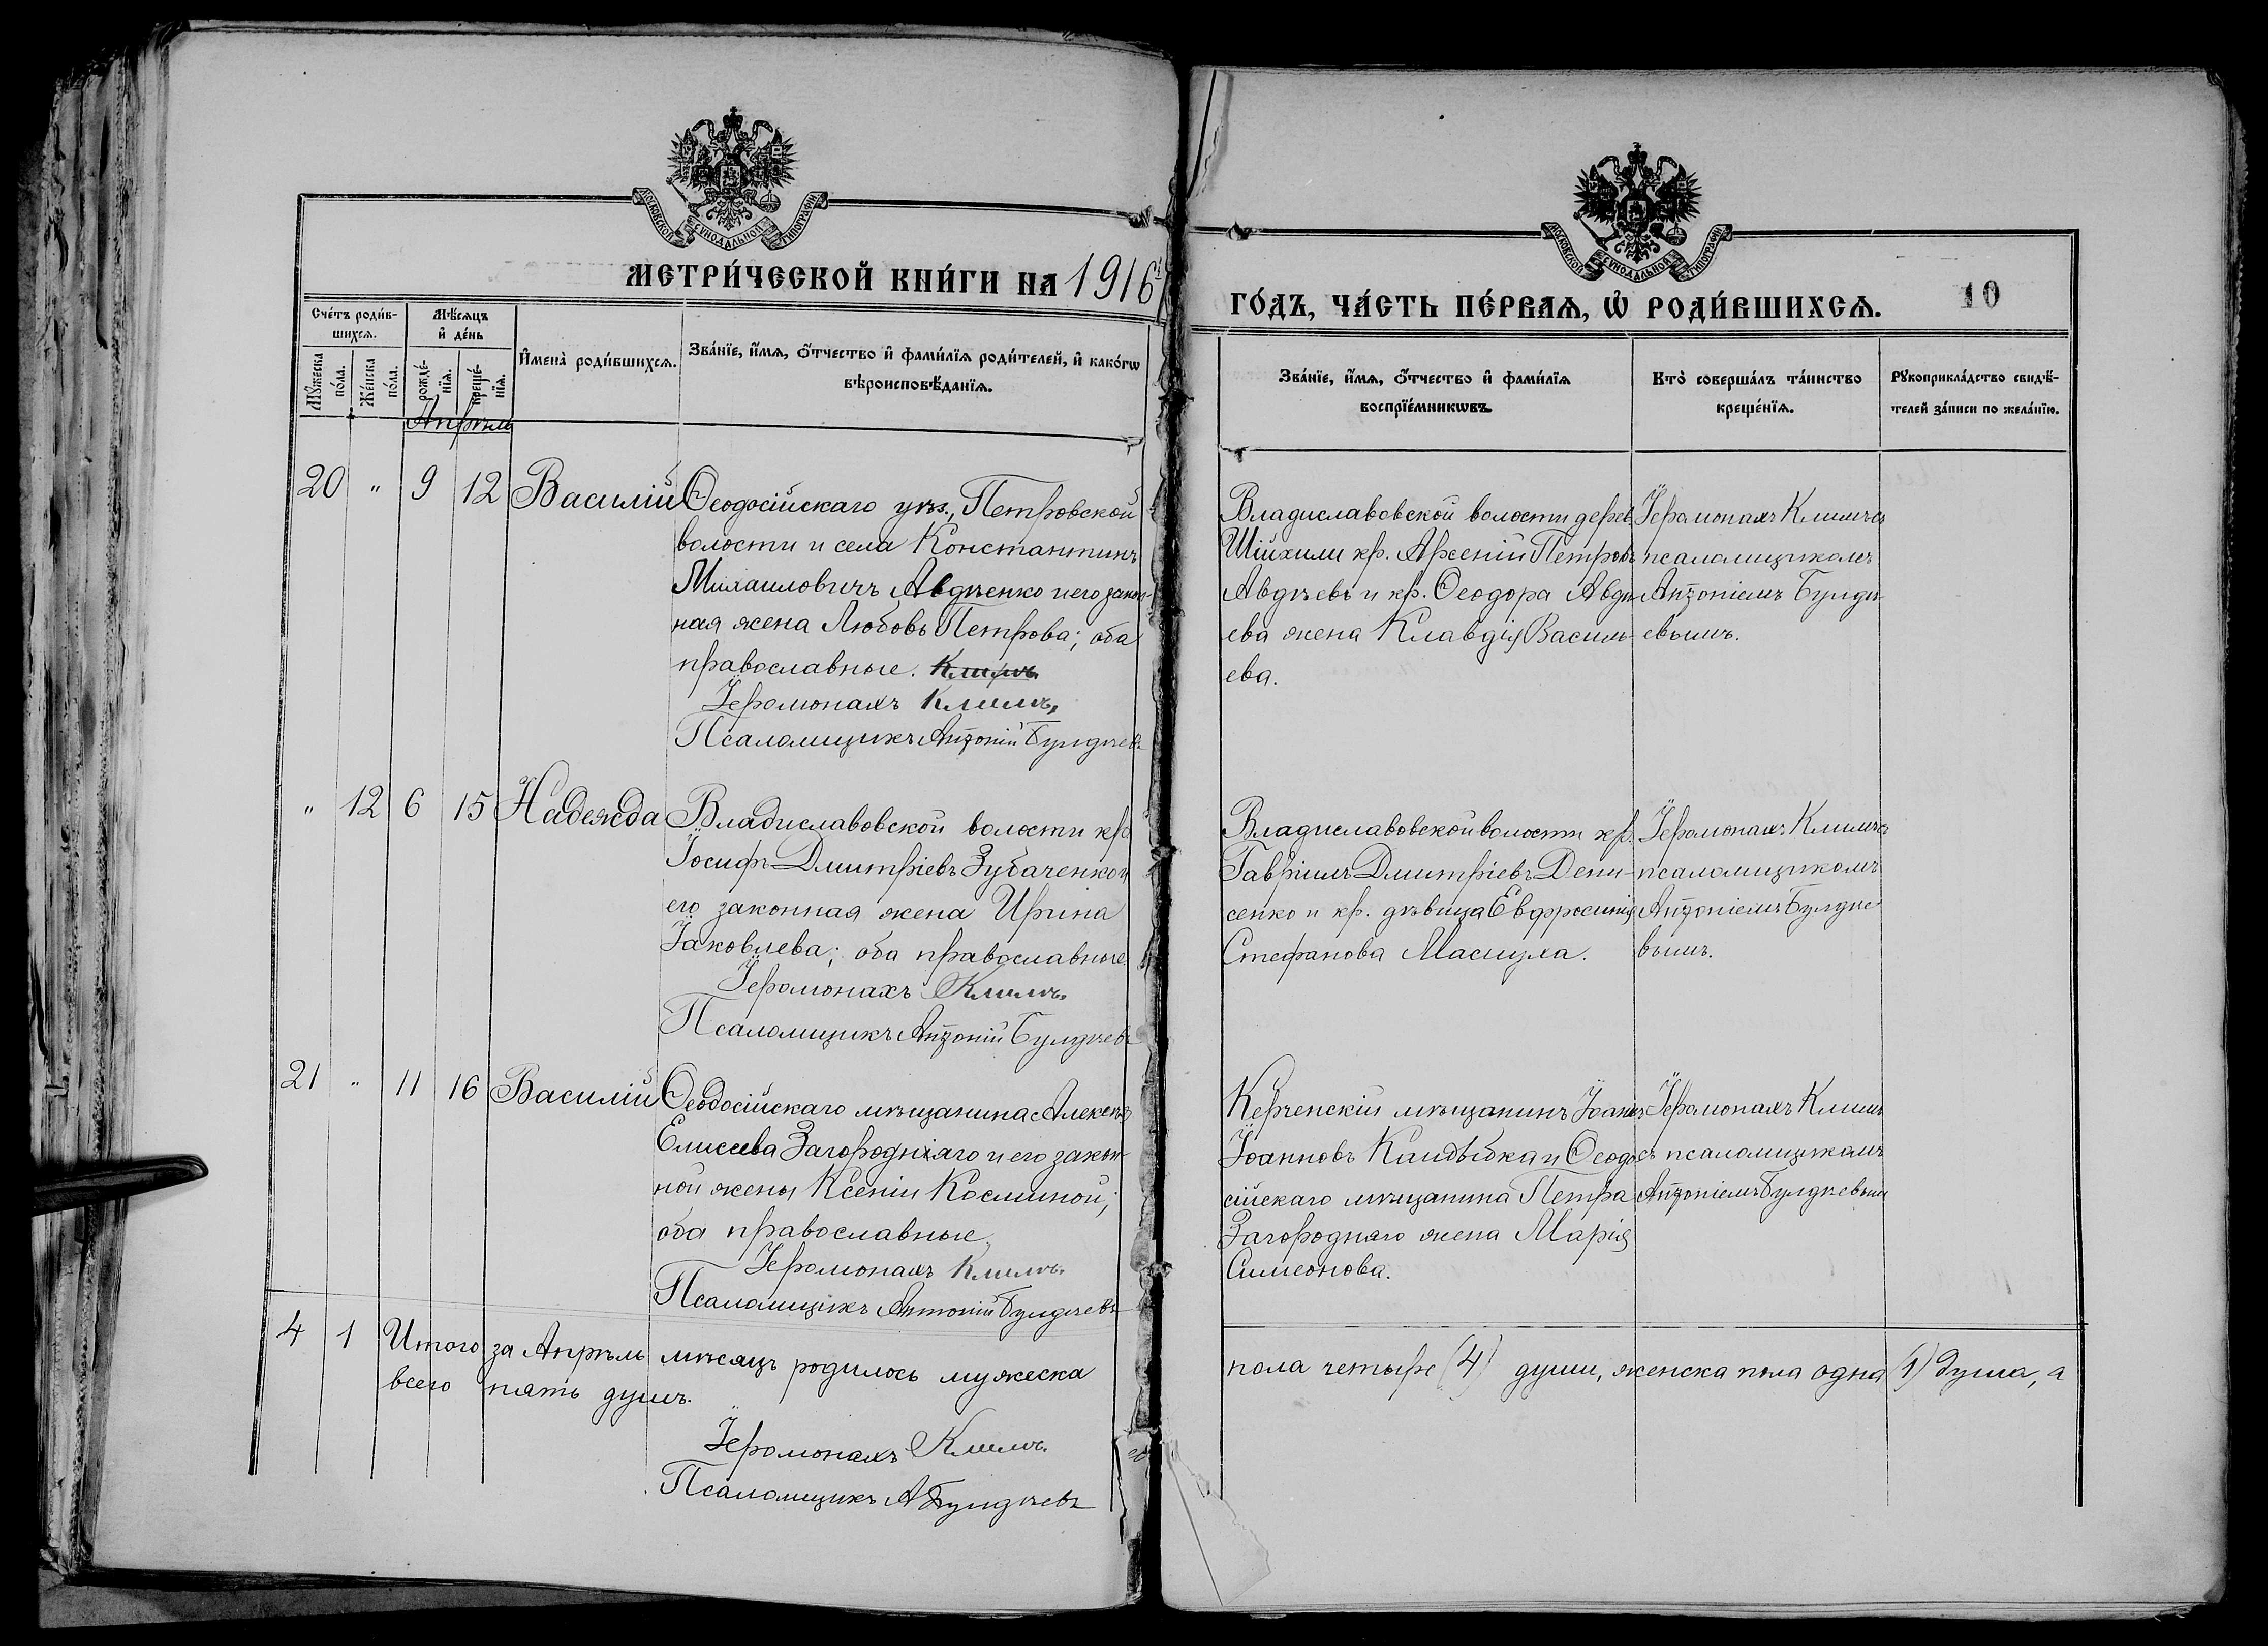 МОСКОВСКОЙ СУНОДАЛЬНОЙ ТИПОГРАФІИ
МОСКОВСКОЙ СУНОДАЛЬНОЙ ТИПОГРАФІИ
МЕТРИ́ЧЕСКОЙ КНИ́ГИ НА 1916
ГО́ДЪ, ЧА́СТЬ ПЕ́РВАѦ, Ѡ҆ РОДИ́ВШИХСѦ.
10
Сче́тъ роди́в-
шихсѧ.
Мѣ́сѧцъ
и҆ де́нь
Мꙋ́жеска
по́ла.
Же́нска
по́ла.
рожде́-
нїѧ.
креще́-
нїѧ.
И҆мена̀ роди́вшихсѧ.
Зва́нїе, и҆́мѧ, ѻ҆́тчество и҆ фами́лїѧ роди́телей, и҆ како́гѡ
вѣроисповѣ́данїѧ.
Зва́нїе, и҆́мѧ, ѻ҆́тчество и҆ фами́лїѧ
воспрїе́мникѡвъ.
Кто̀ соверша́лъ та́инство
креще́нїѧ.
Рꙋкоприкла́дство свидѣ́-
телей за́писи по жела́нїю.
Апрѣль
20 " 9 12 Василій
Ѳеодосійскаго уѣз., Петровской
волости и села Константинъ
Михаиловичъ Авдѣенко и его закон-
ная жена Любовь Петрова; оба
православные. Климъ
Іеромонахъ Климъ,
Псаломщикъ Антоній Булдѣевъ
Владиславовской волости дерев.
Шійхили кр. Арсеній Петровъ
Авдѣевъ и кр. Ѳеодора Авдѣ-
ева жена Клавдія Василь-
ева.
Іеромонахъ Климъ съ
псаломщикомъ
Антоніемъ Булдѣ-
евымъ.
" 12 6 15 Надежда
Владиславовской волости кр.
Іосифъ Дмитріевъ Зубаченко и
его законная жена Ирина
Іаковлева; оба православные.
Іеромонахъ Климъ.
Псаломщикъ Антоній Булдѣевъ
Владиславовской волости кр.
Гавріилъ Дмитріевъ Дени-
сенко и кр. дѣвица Евфросинія
Стефанова
Іеромонахъ Климъ съ
псаломщикомъ
Антоніемъ Булдѣе
вымъ.
21 " 11 16 Василій
Ѳеодосійскаго мѣщанина Алексѣя
Елисеева Загородняго и его закон-
ной жены Ксеніи Косминой;
оба православные.
Іеромонахъ Климъ.
Псаломщикъ Антоній Булдѣевъ
Керченскій мѣщанинъ Іоаннъ
Іоанновъ Кандыбка и Ѳеодо-
сійскаго мѣщанина Петра
Загородняго жена Марія
Симеонова.
Іеромонахъ Климъ
съ псаломщикомъ
Антоніемъ Булдѣевымъ
4 1 Итого за Апрѣль мѣсяцъ родилось мужеска
пола четыре (4) души, женска пола одна (1) душа, а
всего пять душъ.
Іеромонахъ Климъ.
Псаломщикъ А Булдѣевъ